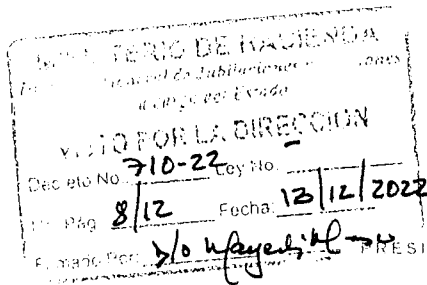 MINISTERIO DE HACIENDA
General de Jubilaciones
a cargo del Estado
VISTO POR LA DIRECCION
Decreto No. 710-22 Ley No.
Pág 8/12 Fecha: 13/12/2022
Firmado Por: P/O
PRESI